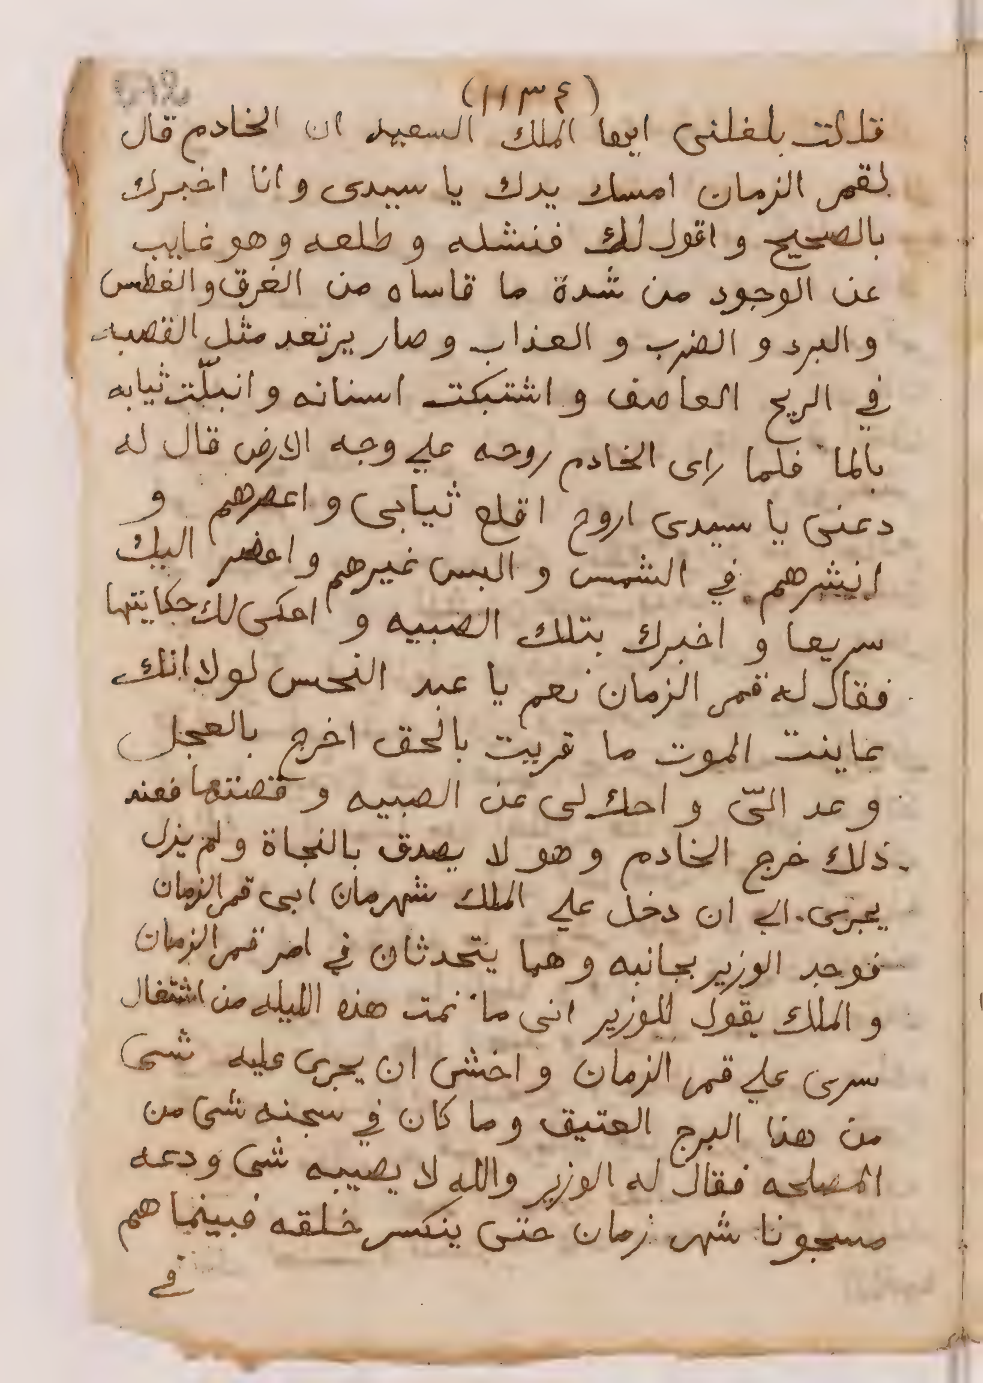 (١١٣٤)
قالت بلغلنى ايها الملك السعيد ان الخادم قال
لقمر الزمان امسك يدك يا سيدى وانا اخبرك
بالصحيح و اقول لك فنشله و طلعه وهو غايب
عن الوجود من شدة ما قاساه من الغرق والغطس
و البرد و الضرب و العذاب و صار يرتعد مثل القصبه
في الريح العاصف و اشتبكت اسنانه و انبلّت ثيابه
بالما فلما راى الخادم روحه علي وجه الارض قال له
دعنى يا سيدى اروح اقلع ثيابى و اعصرهم و
انشرهم في الشمس و البس غيرهم و احضر اليك
سريعا و اخبرك بتلك الصبيه و احكى لك حكايتها
فقال له قمر الزمان نعم يا عبد النحس لولا انك
عاينت الموت ما قريت بالحق اخرج بالعجل
و عد الىّ و احك لى عن الصبيه و قصتها فعند
ذلك خرج الخادم و هو لا يصدق بالنجاة ولم يزل
يجرى الي ان دخل علي الملك شهرمان ابى قمر الزمان
فوجد الوزير بجانبه و هما يتحدثان في امر قمر الزمان
و الملك يقول للوزير انى ما نمت هذه الليله من اشتغال
سرى علي قمر الزمان و اخشى ان يجرى عليه شى
من هذا البرج العتيق وما كان في سجنه شى من
المصلحه فقال له الوزير والله لا يصيبه شى ودعه
مسجونا شهر زمان حتى ينكسر خلقه فبينما هم
في